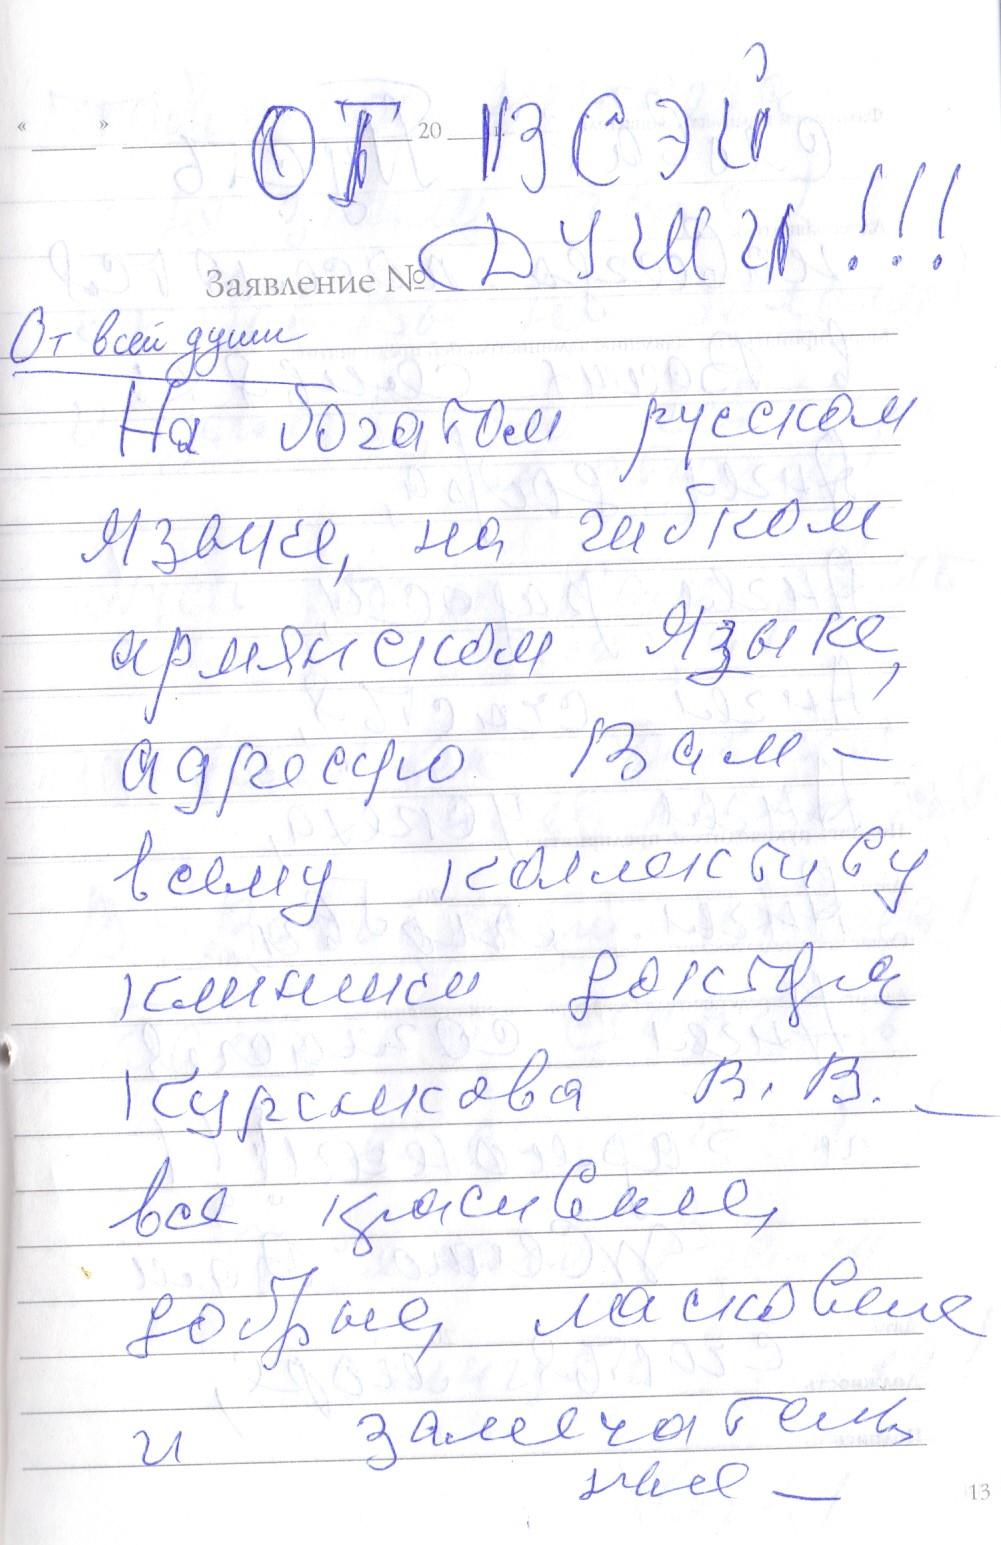 « » 20 г.
ОТ ВСЭЙ
ДУШИ!!!
Заявление №
От всей души
На богатом русском
языке, на гибком
армянском языке,
адресую Вам –
всему коллективу
клиники доктора
Курсикова В. В. –
все красивые,
добрые, ласковые
и замечатель
ные –
13